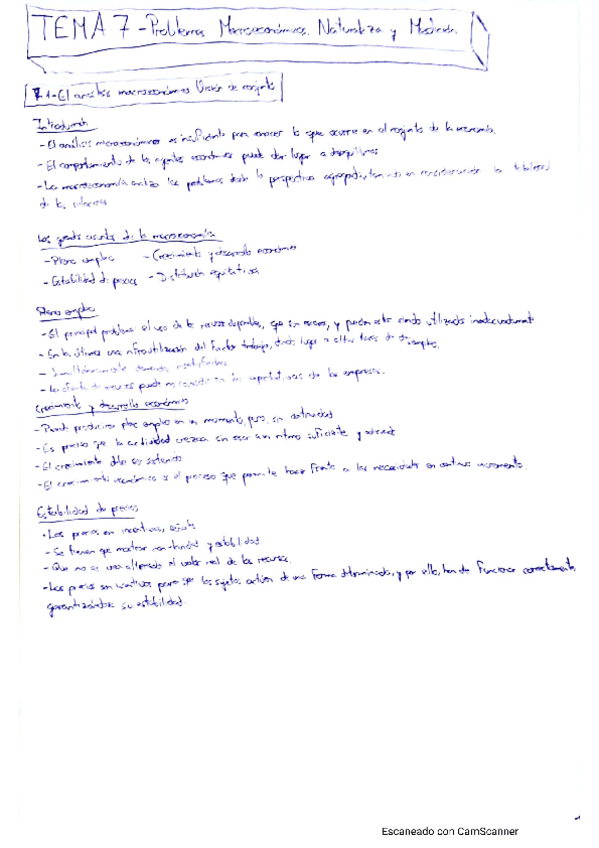 TEMA 7 - Problemas Macroeconómicos. Naturaleza y Medición.
7.1- El análisis macroeconómico. Visión de conjunto
Introducción
- El análisis microeconómico es insuficiente para conocer lo que ocurre en el conjunto de la economía.
- El comportamiento de los agentes económicos puede dar lugar a desequilibrios
- La macroeconomía analiza los problemas desde la perspectiva agregada, teniendo en consideración la totalidad
de los
Los grandes asuntos de la macroeconomía
- Pleno empleo - Crecimiento y desarrollo económico
- Estabilidad de precios - Distribución equitativa
Pleno empleo
- El principal problema el uso de los recursos disponibles, que son escasos, y pueden estar siendo utilizados inadecuadamente
- En los últimos una infrautilización del factor trabajo, dando lugar a altas tasas de desempleo.
- Simultáneamente demandas insatisfechas
- La oferta de puede no las expectativas de las empresas.
Crecimiento y desarrollo económico
- Puede producirse pleno empleo en un momento, pero sin continuidad
- Es preciso que la actividad crezca sin cesar a un ritmo suficiente y
- El crecimiento debe ser sostenido
- El crecimiento económico es el proceso que permite hacer frente a las necesidades en continuo incremento
Estabilidad de precios
- Los precios son incentivos, señales
- Se tienen que mostrar con claridad y estabilidad
- Que no se vea alterado el valor real de los recursos.
- Los precios son incentivos para que los sujetos actúen de una forma determinada, y por ello, han de funcionar correctamente,
garantizándose su estabilidad.
Escaneado con CamScanner